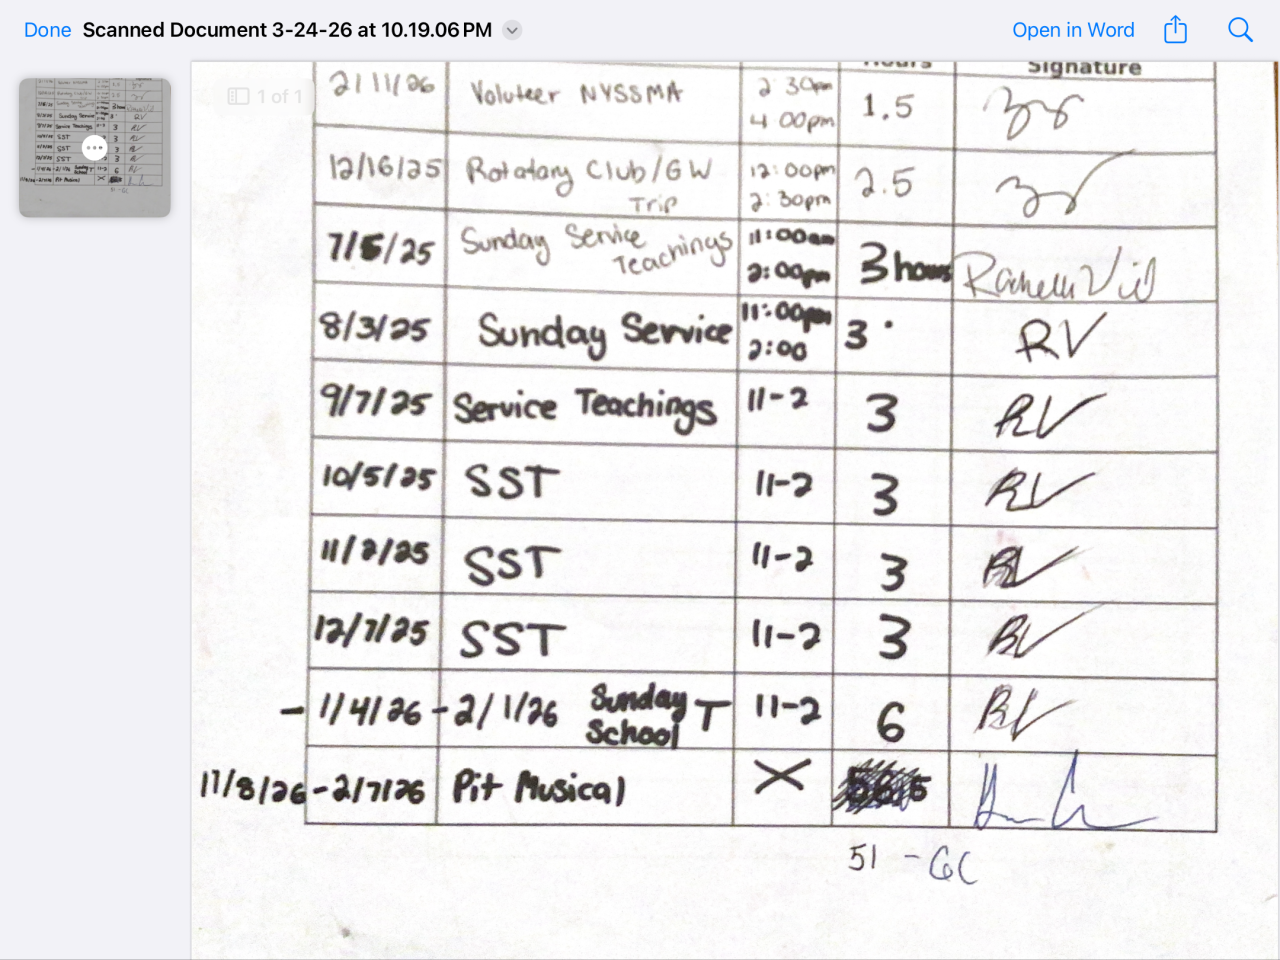 Done Scanned Document 3-24-26 at 10.19.06 PM Open in Word
1 of 1
Hours Signature
2/11/26 Voluteer NYSSMA 2:30pm 4:00pm 1.5
12/16/25 Rotatary Club/GW Trip 12:00pm 2:30pm 2.5
7/5/25 Sunday Service Teachings 11:00am 2:00pm 3 hours
8/3/25 Sunday Service 11:00pm 2:00 3 RV
9/7/25 Service Teachings 11-2 3 RV
10/5/25 SST 11-2 3 RV
11/2/25 SST 11-2 3 RV
12/7/25 SST 11-2 3 RV
- 1/4/26 - 2/1/26 Sunday School T 11-2 6 RV
11/8/26 - 2/7/26 Pit Musical X
51 - GC